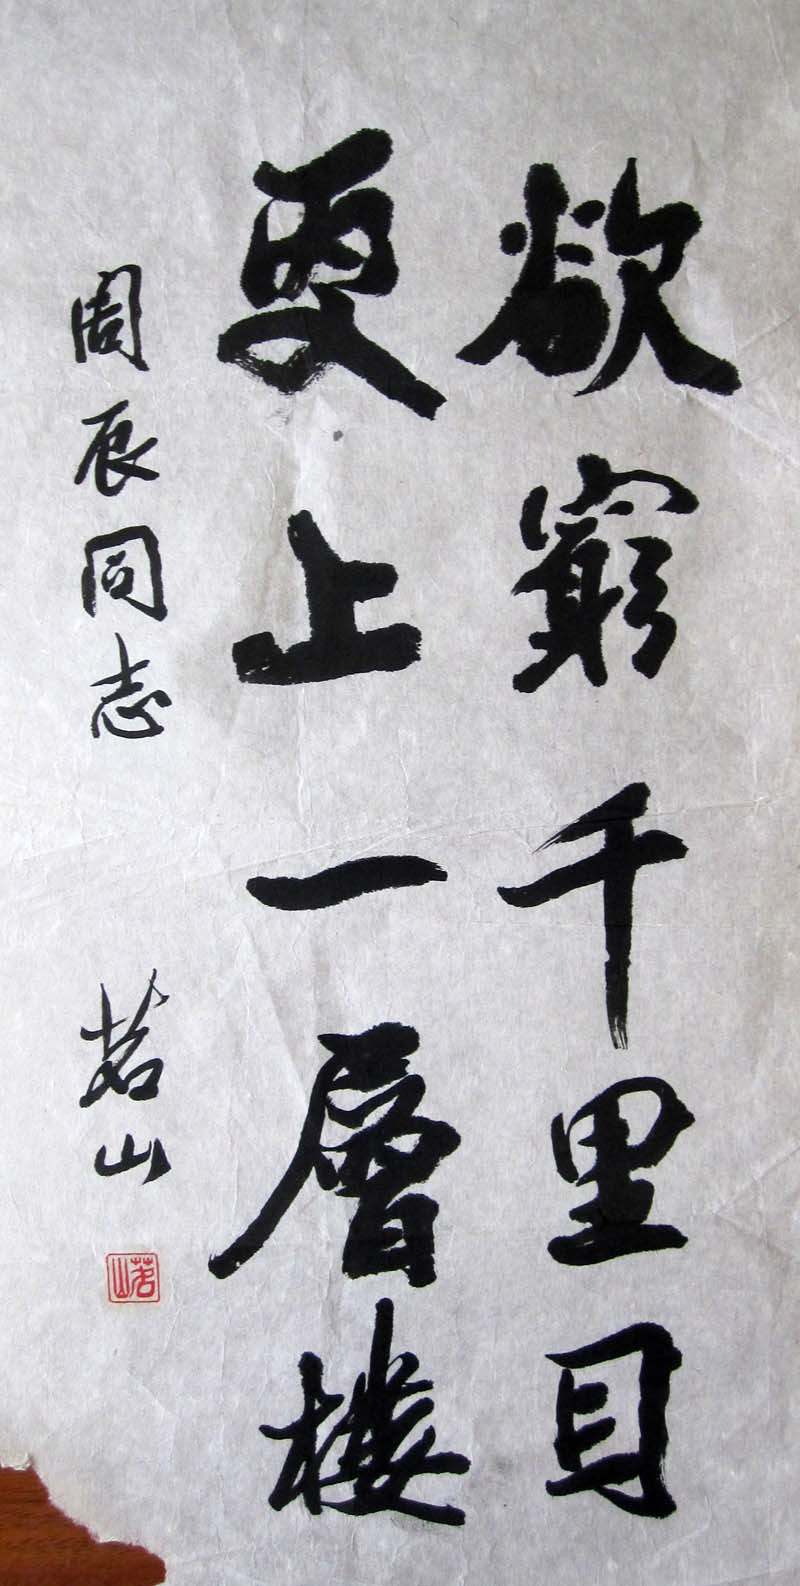 欲窮千里目
更上一層樓
周辰同志
茗山
茗山